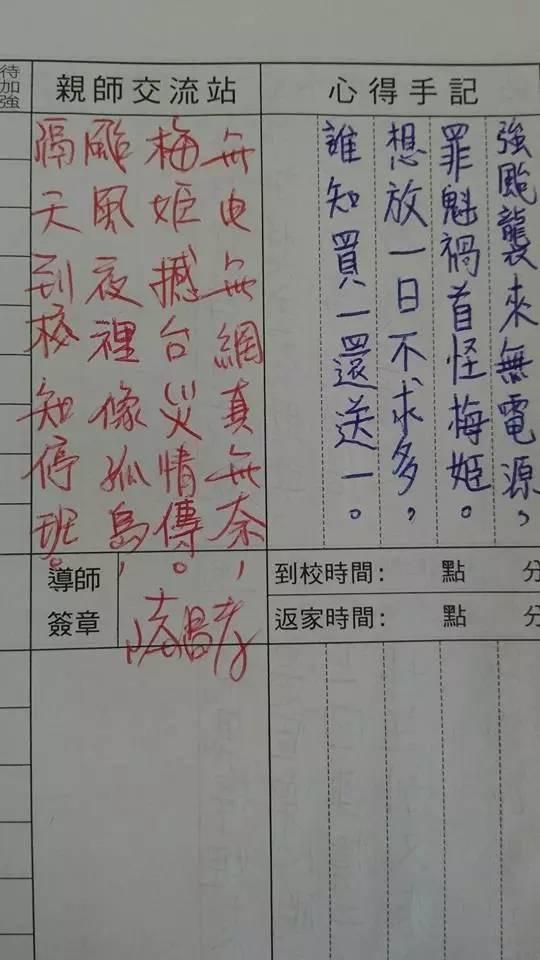 心得手記
強颱襲來無電源，
罪魁禍首怪梅姬。
想放一日不求多，
誰知買一還送一。
到校時間： 點 分
返家時間： 點 分
親師交流站
無电無網真無奈，
梅姬撼台災情傳。
颱風夜裡像孤島，
隔天到校知停班。
導師
簽章
待加強